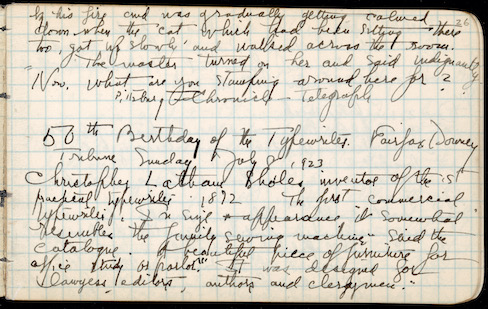 by his fire and was gradually getting calmed
down when the cat which had been sitting there
too, got up slowly and walked across the room.
"The master turned on her and said indignantly
"Now, what are you stamping around here for?
Pittsburg Chronicle-Telegraph
26
50th Birthday of the Typewriter. Fairfax Downey
Tribune Sunday July 8, 1923
Christopher Latham Sholes, inventor of the 1st
practical typewriter 1872 The first commercial
typewriter. In size & appearance it somewhat
resembles the family sewing machine" said the
catalogue. "A beautiful piece of furniture for
office study or parlor." It was designed for
"lawyers, editors, authors and clergymen."